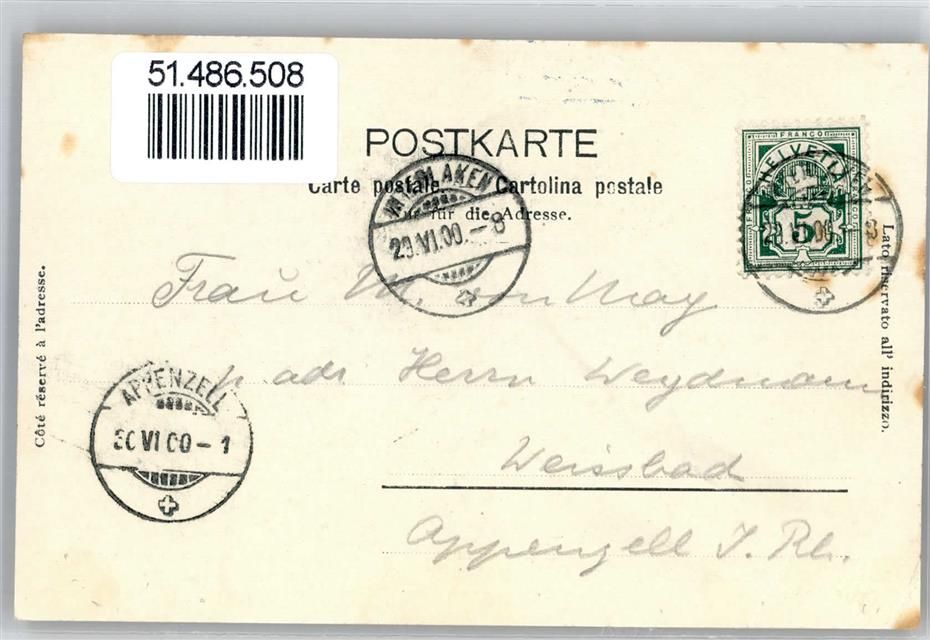 51.486.508
POSTKARTE
Carte postale. Cartolina postale
Nur für die Adresse.
FRANCO
HELVETIA
5
INTERLAKEN
29.VI.00.-8
Côté réservé à l'adresse.
Lato riservato all' indirizzo.
Frau M. von May
p. adr. Herrn Weydmann
Weissbad
Appenzell I. Rh.
APPENZELL
30 VI 00-1